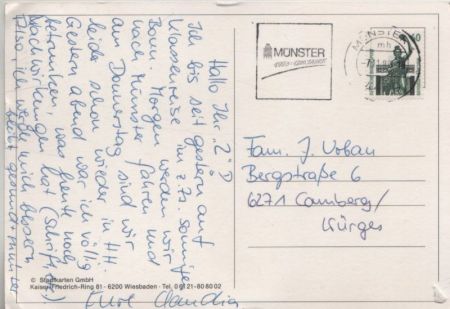 Hallo Ihr "2" D
Ich bin seit gestern auf
Klassenreise im z.Zt. sonnigen
Bonn. Morgen werden wir
nach Münster fahren und
am Donnerstag sind wir
leider schon wieder in HH.
Gestern abend war ich völlig
betrunken, was heute noch
Nachwirkungen hat (Schrift)
Also, ich werde mich bessern
bleibt gesund + munter
Eure Claudia
© Stadtkarten GmbH
Kaiser-Friedrich-Ring 81 · 6200 Wiesbaden · Tel. 0 61 21-80 80 02
MÜNSTER
MÜNSTER
mh
60
Fam. J. Urban
Bergstraße 6
6271 Camberg/
Würges